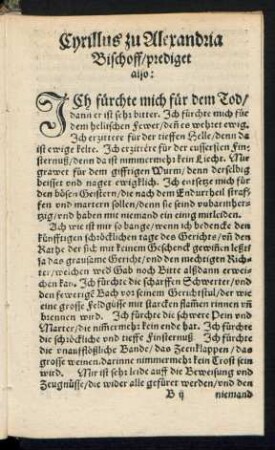 Cyrillus zu Alexandria
Bischoff/prediget
also:
ICh fürchte mich für dem Tod/
dann er ist sehr bitter. Ich fürchte mich für
dem hellischen Fewer/deñ es wehret ewig.
Ich erzittere für der tieffen Helle/denn da
ist ewige kelte. Ich erzittere für der eussersten Fin-
sternuß/denn da ist nimmermehr kein Liecht. Mir
grawet für dem gifftigen Wurm/denn derselbig
beisset vnd naget ewigklich. Ich entsetze mich für
den bösen Geistern/die nach dem Endurtheil straf-
fen vnd martern sollen/denn sie seind vnbarmher-
tzig/vnd haben mit niemand ein einig mitleiden.
Ach wie ist mir so bange/wenn ich bedencke den
künfftigen schröcklichen tage des Gerichts/vñ den
Rathe der sich mit keinem Geschenck gewinen lesset
ja das grausame Gericht/vnd den mechtigen Rich-
ter/weichen wed Gab noch Bitte alßdann erwei-
chen kan. Ich fürchte die scharffen Schwerter/vnd
den fewerigē Bach vor seinem Gerichtstul/der wie
eine grosse Feldgüsse mit starcken flañen rinnen vñ
brennen wird. Ich fürchte die schwere Pein vnd
Marter/die nim̃ermehr kein ende hat. Ich fürchte
die schröckliche vnd tieffe Finsternuß. Ich fürchte
die vnaufflößliche Bande/das Zeenklappen/das
grosse weinen/darinne nimmermehr kein Trost sein
wird. Mir ist sehr leide auff die Beweisung vnd
Zeugnüsse/die wider alle gefüret werden/vnd den
B ij niemand